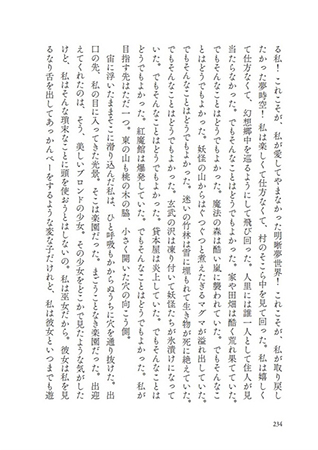 る私！これこそが、私が愛してやまなかった明晰夢世界！これこそが、私が取り戻し
たかった夢時空！私は楽しくて仕方なくて、村のそこら中を見て回った。私は嬉しく
て仕方なくて、幻想郷中を巡るようにして飛び回った。人里には誰一人として住人が見
当たらなかった。でもそんなことはどうでもよかった。家や田畑は酷く荒れ果てていた。
でもそんなことはどうでもよかった。魔法の森は酷い嵐に襲われていた。でもそんなこ
とはどうでもよかった。妖怪の山からはぐつぐつと煮えたぎるマグマが溢れ出していた。
でもそんなことはどうでもよかった。迷いの竹林は雪に埋もれて生き物が死に絶えていた。
でもそんなことはどうでもよかった。玄武の沢は凍り付いて妖怪たちが氷漬けになって
いた。でもそんなことはどうでもよかった。貸本屋は炎上していた。でもそんなことは
どうでもよかった。紅魔館は爆発していた。でもそんなことはどうでもよかった。私が
目指す先はただ一つ。東の山も桃の木の脇、小さく開いた穴の向こう側。
宙に浮いたままそこに滑り込んだ私は、ひと呼吸もかからぬうちに穴を通り抜けた。出
口の先、私の目に入ってきた光景。そこは楽園だった。まごうことなき楽園だった。出迎
えてくれたのは、そう、美しいブロンドの少女。その少女をどこかで見たような気がした
けど、私はそんな瑣末なことに頭を使おうとはしないの。私は巫女だから。彼女は私を見
るなり舌を出してあっかんべーをするような変な子だけれど、私は彼女といつまでも遊
234